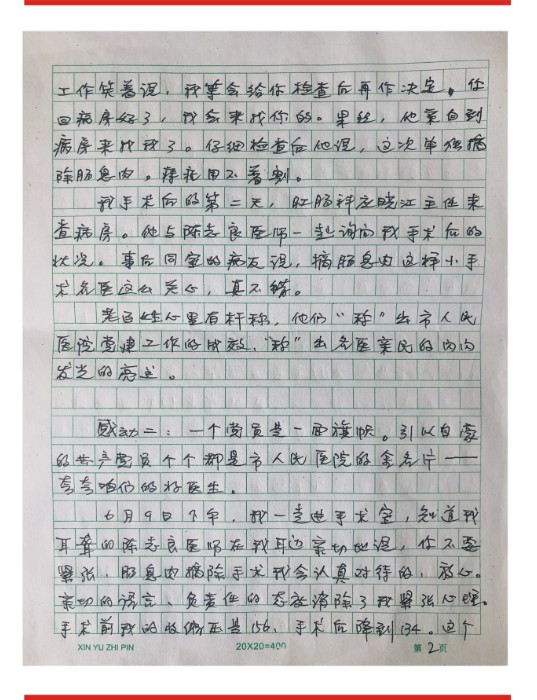 工作笑着说，我等会给你检查后再作决定。你
回病房好了，我会来找你的。果然，他亲自到
病房来找我了。仔细检查后他说，这次单独摘
除肠息肉。痔疮用不着割。
我手术后的第二天，肛肠科应晓江主任来
查病房。他与陈志良医师一起询问我手术后的
状况。事后同室的病友说，摘肠息肉这样小手
术名医这么关心，真不错。
老百姓心里有杆秤，他们“称”出市人民
医院党建工作的成效，“称”出名医亲民的内内
发光的亮点。
感动二：一个党员是一面旗帜。引以自豪
的共产党员个个都是市人民医院的金名片——
夸夸咱们的好医生。
6月9日下午，我一走进手术室，知道我
耳聋的陈志良医师在我耳边亲切地说，你不要
紧张，肠息肉摘除手术我会认真对待的，放心。
亲切的语言、负责任的态度消除了我紧张心理。
手术前我的收缩压是156，手术后降到134。这个
XIN YU ZHI PIN 20X20=400 第2页